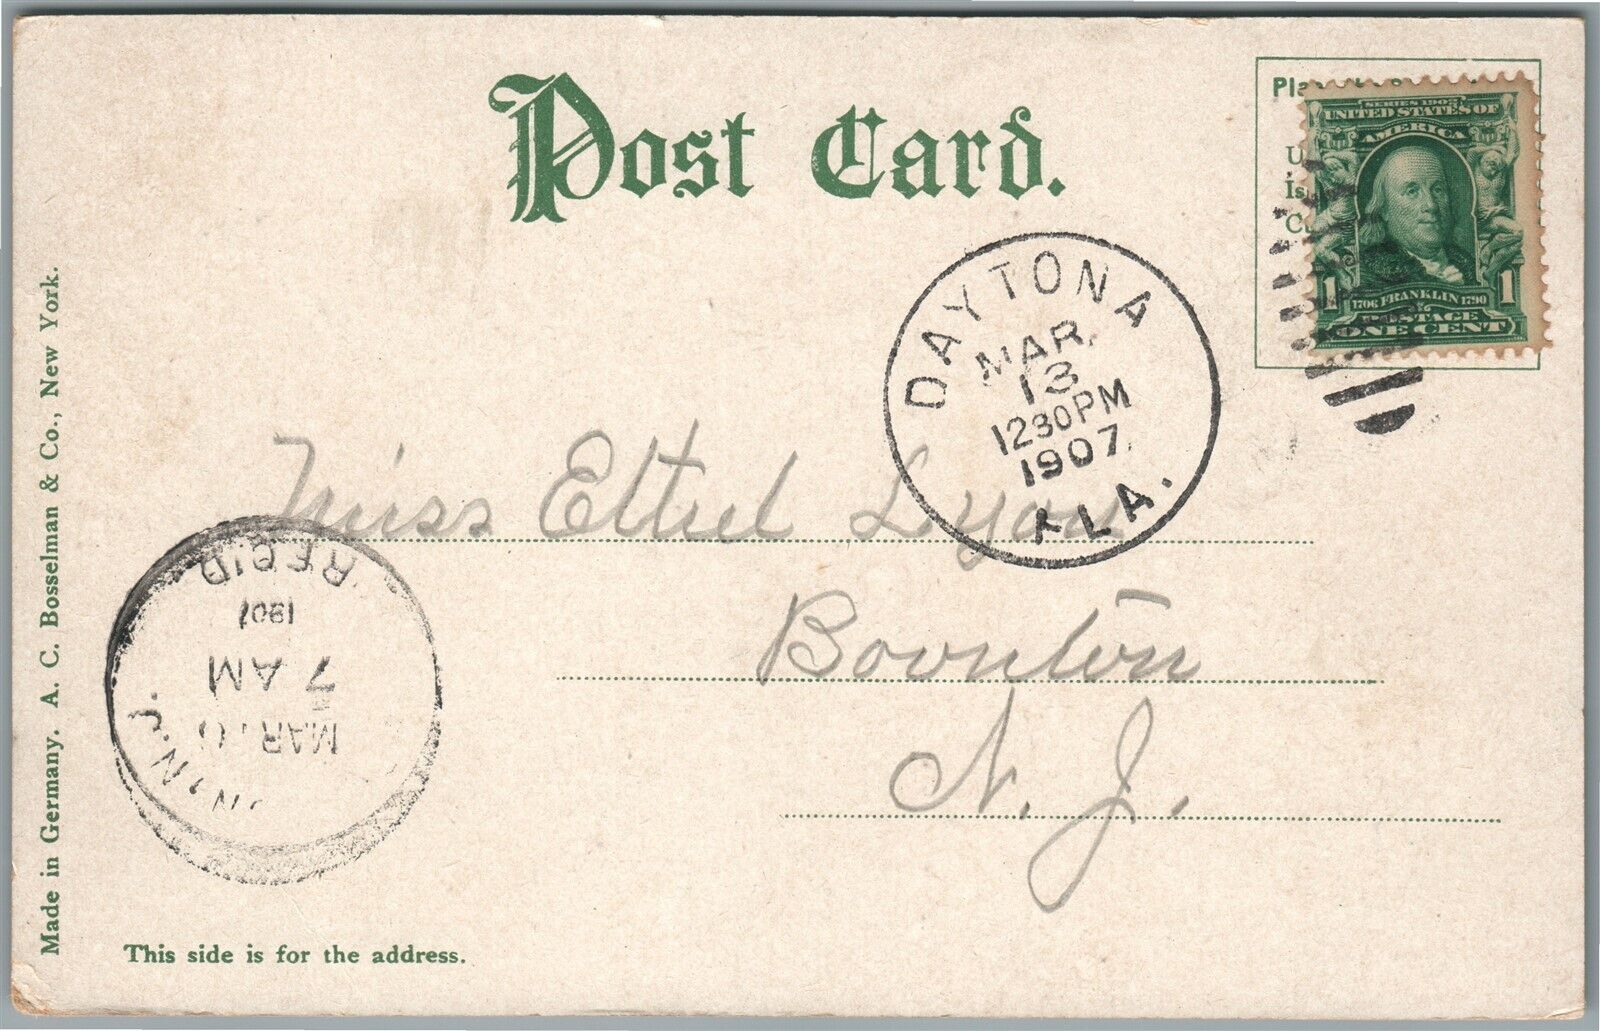 Post Card.
SERIES 1902
UNITED STATES OF
AMERICA
1 1706 FRANKLIN 1790 1
POSTAGE
ONE CENT
DAYTONA
MAR.
13
1230PM
1907.
FLA.
Miss Ethel Lyon
Boonton
N. J.
REC'D.
1907
7 AM
MAR.
N.J.
Made in Germany. A. C. Bosselman & Co., New York.
This side is for the address.